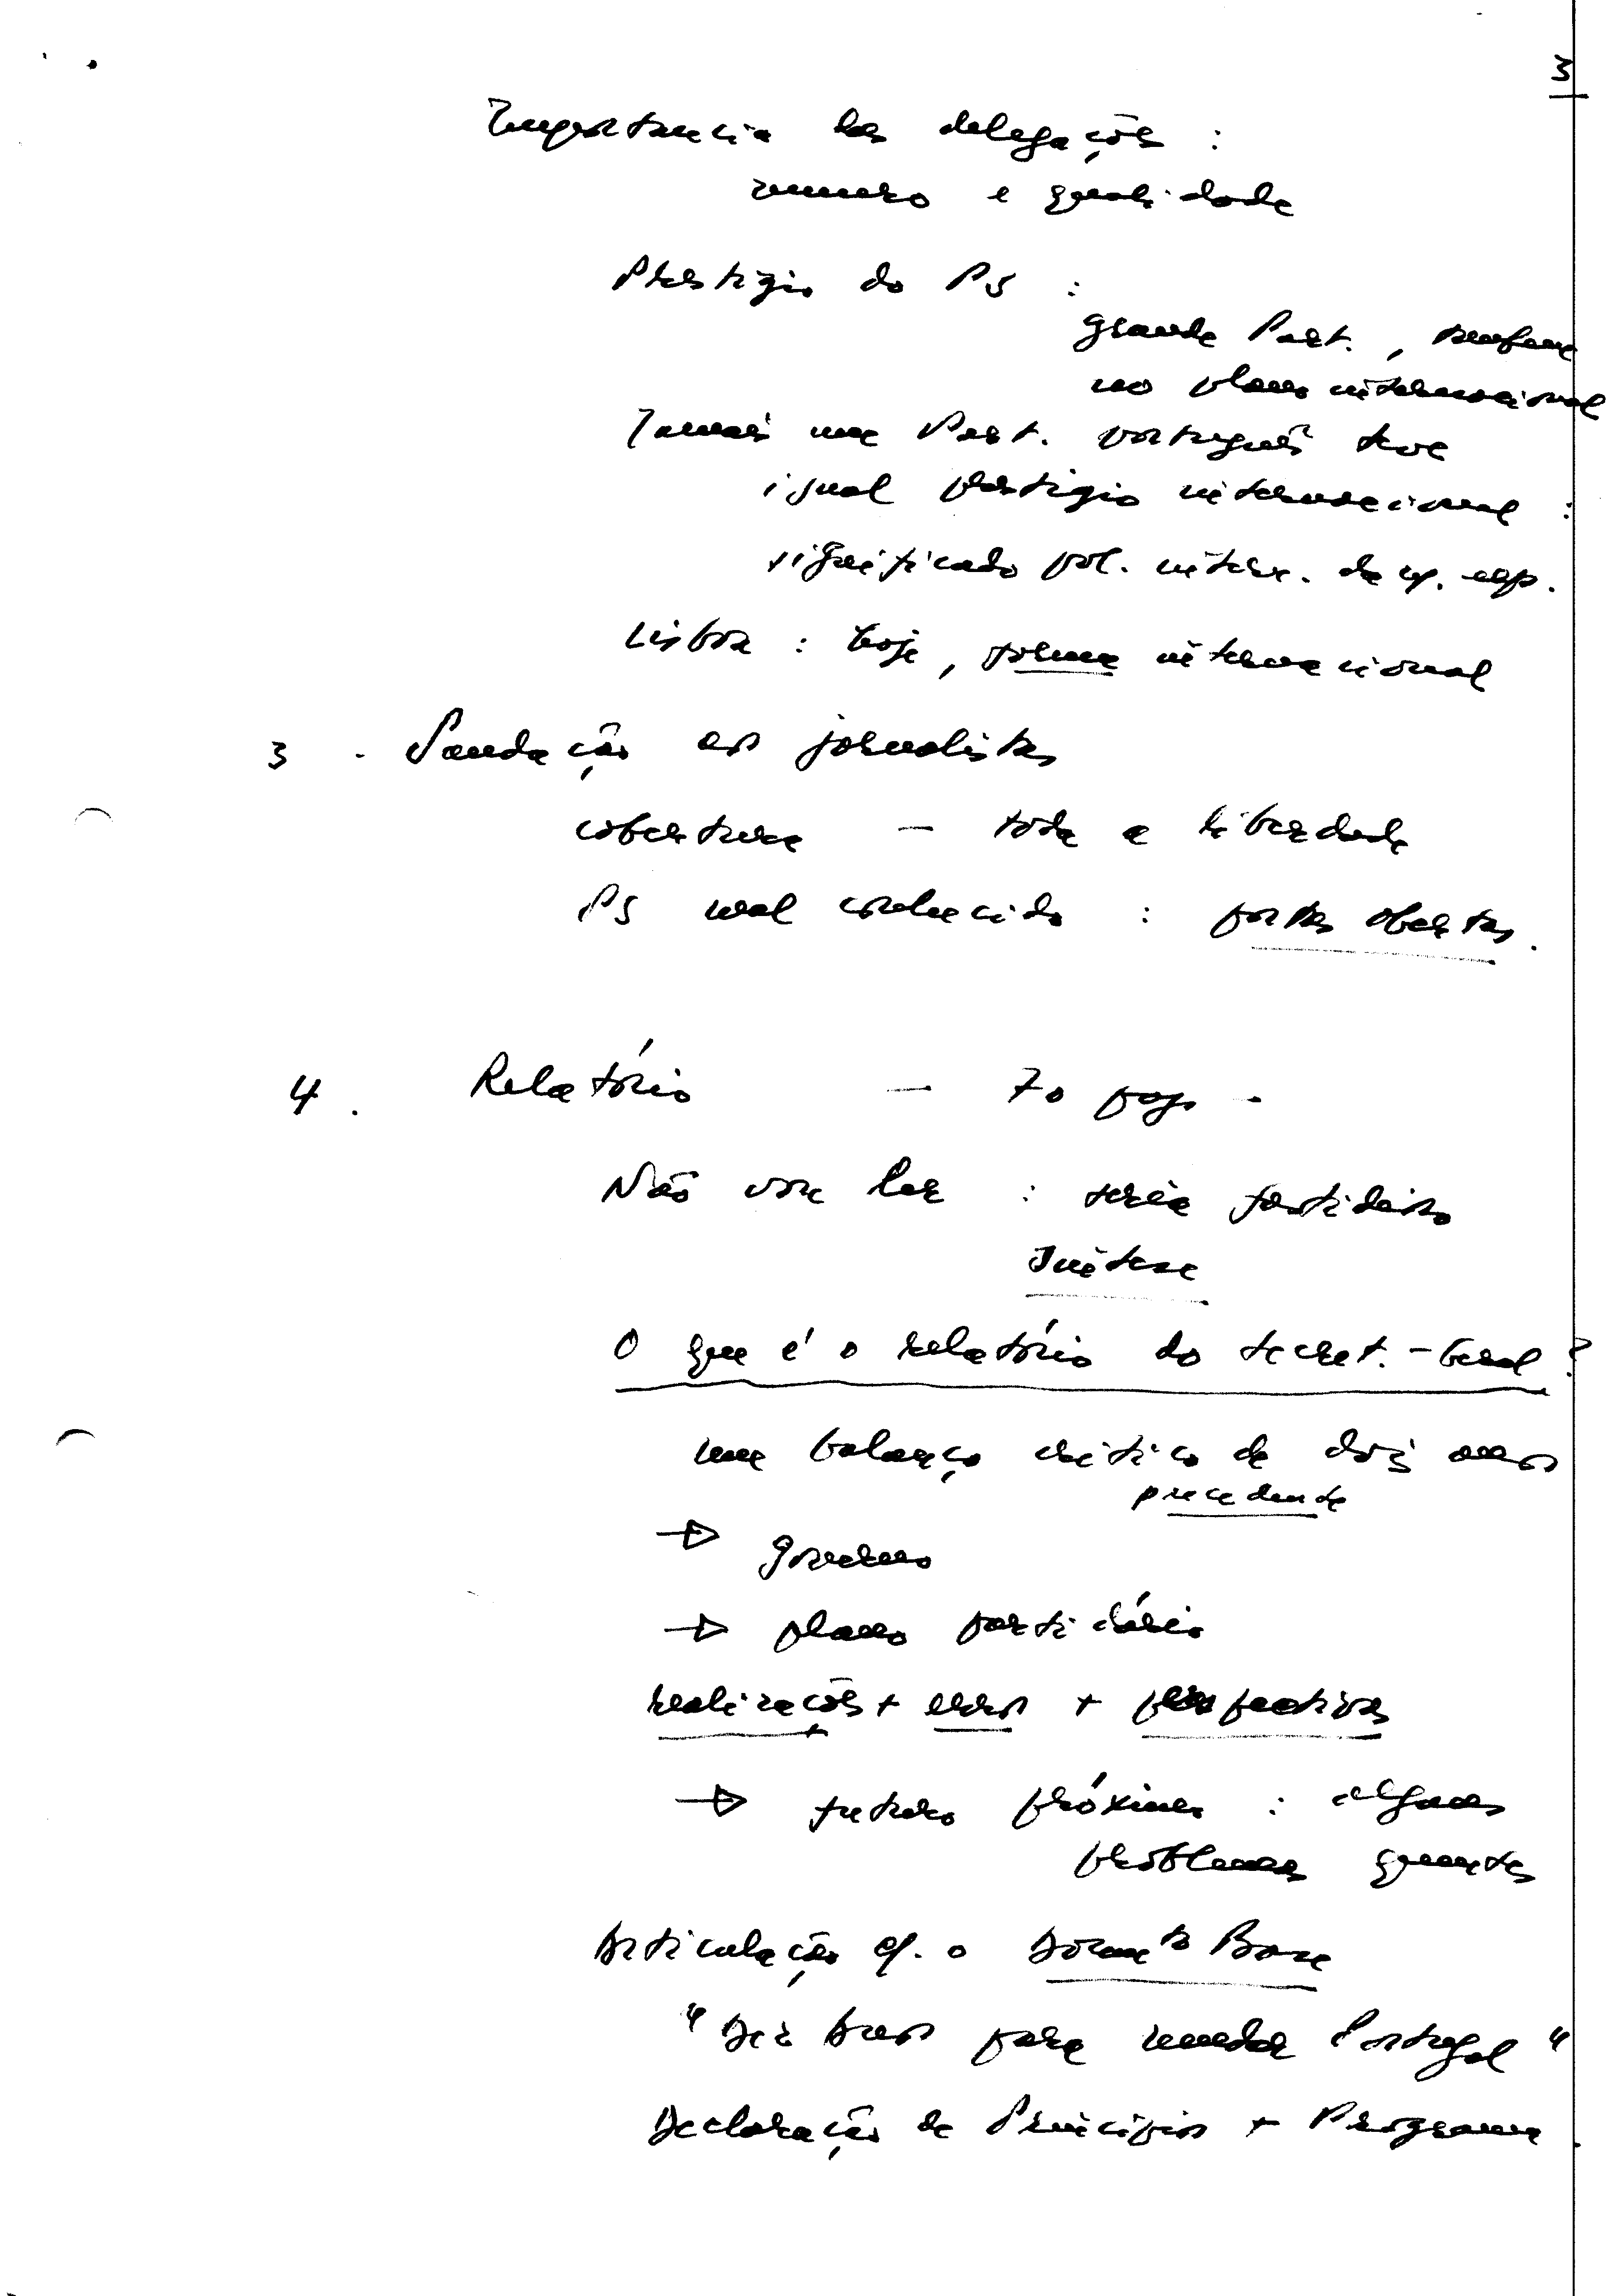 3
Importancia das delegações :
numero e qualidade
Prestígio do PS :
grande Part., mesmo
no plano internacional
Jamais um Part. português teve
igual prestígio internacional :
significado pol. intern. da
Lisboa : hoje, forum internacional
3 . Saudação aos jornalistas
cobertura — toda a liberdade
PS mal conhecido : portas abertas.
4 . Relatório — 70 pags.
Não vou ler : seria fastidioso
Síntese
O que é o relatório do Secret.-Geral ?
um balanço crítico de dois anos
precedente
→ governo
→ plano partidário
realizações + erros + perspectivas
→ futuro próximo : alguns
problemas quentes
Articulação c/. o Docum.to Base
"Dez Anos para mudar Portugal"
Declaração de Princípios + Programa.